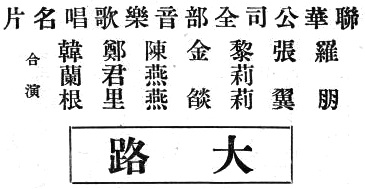 聯華公司全部音樂歌唱名片
羅朋
張翼
黎莉莉
金燄
陳燕燕
鄭君里
韓蘭根
合演
大路